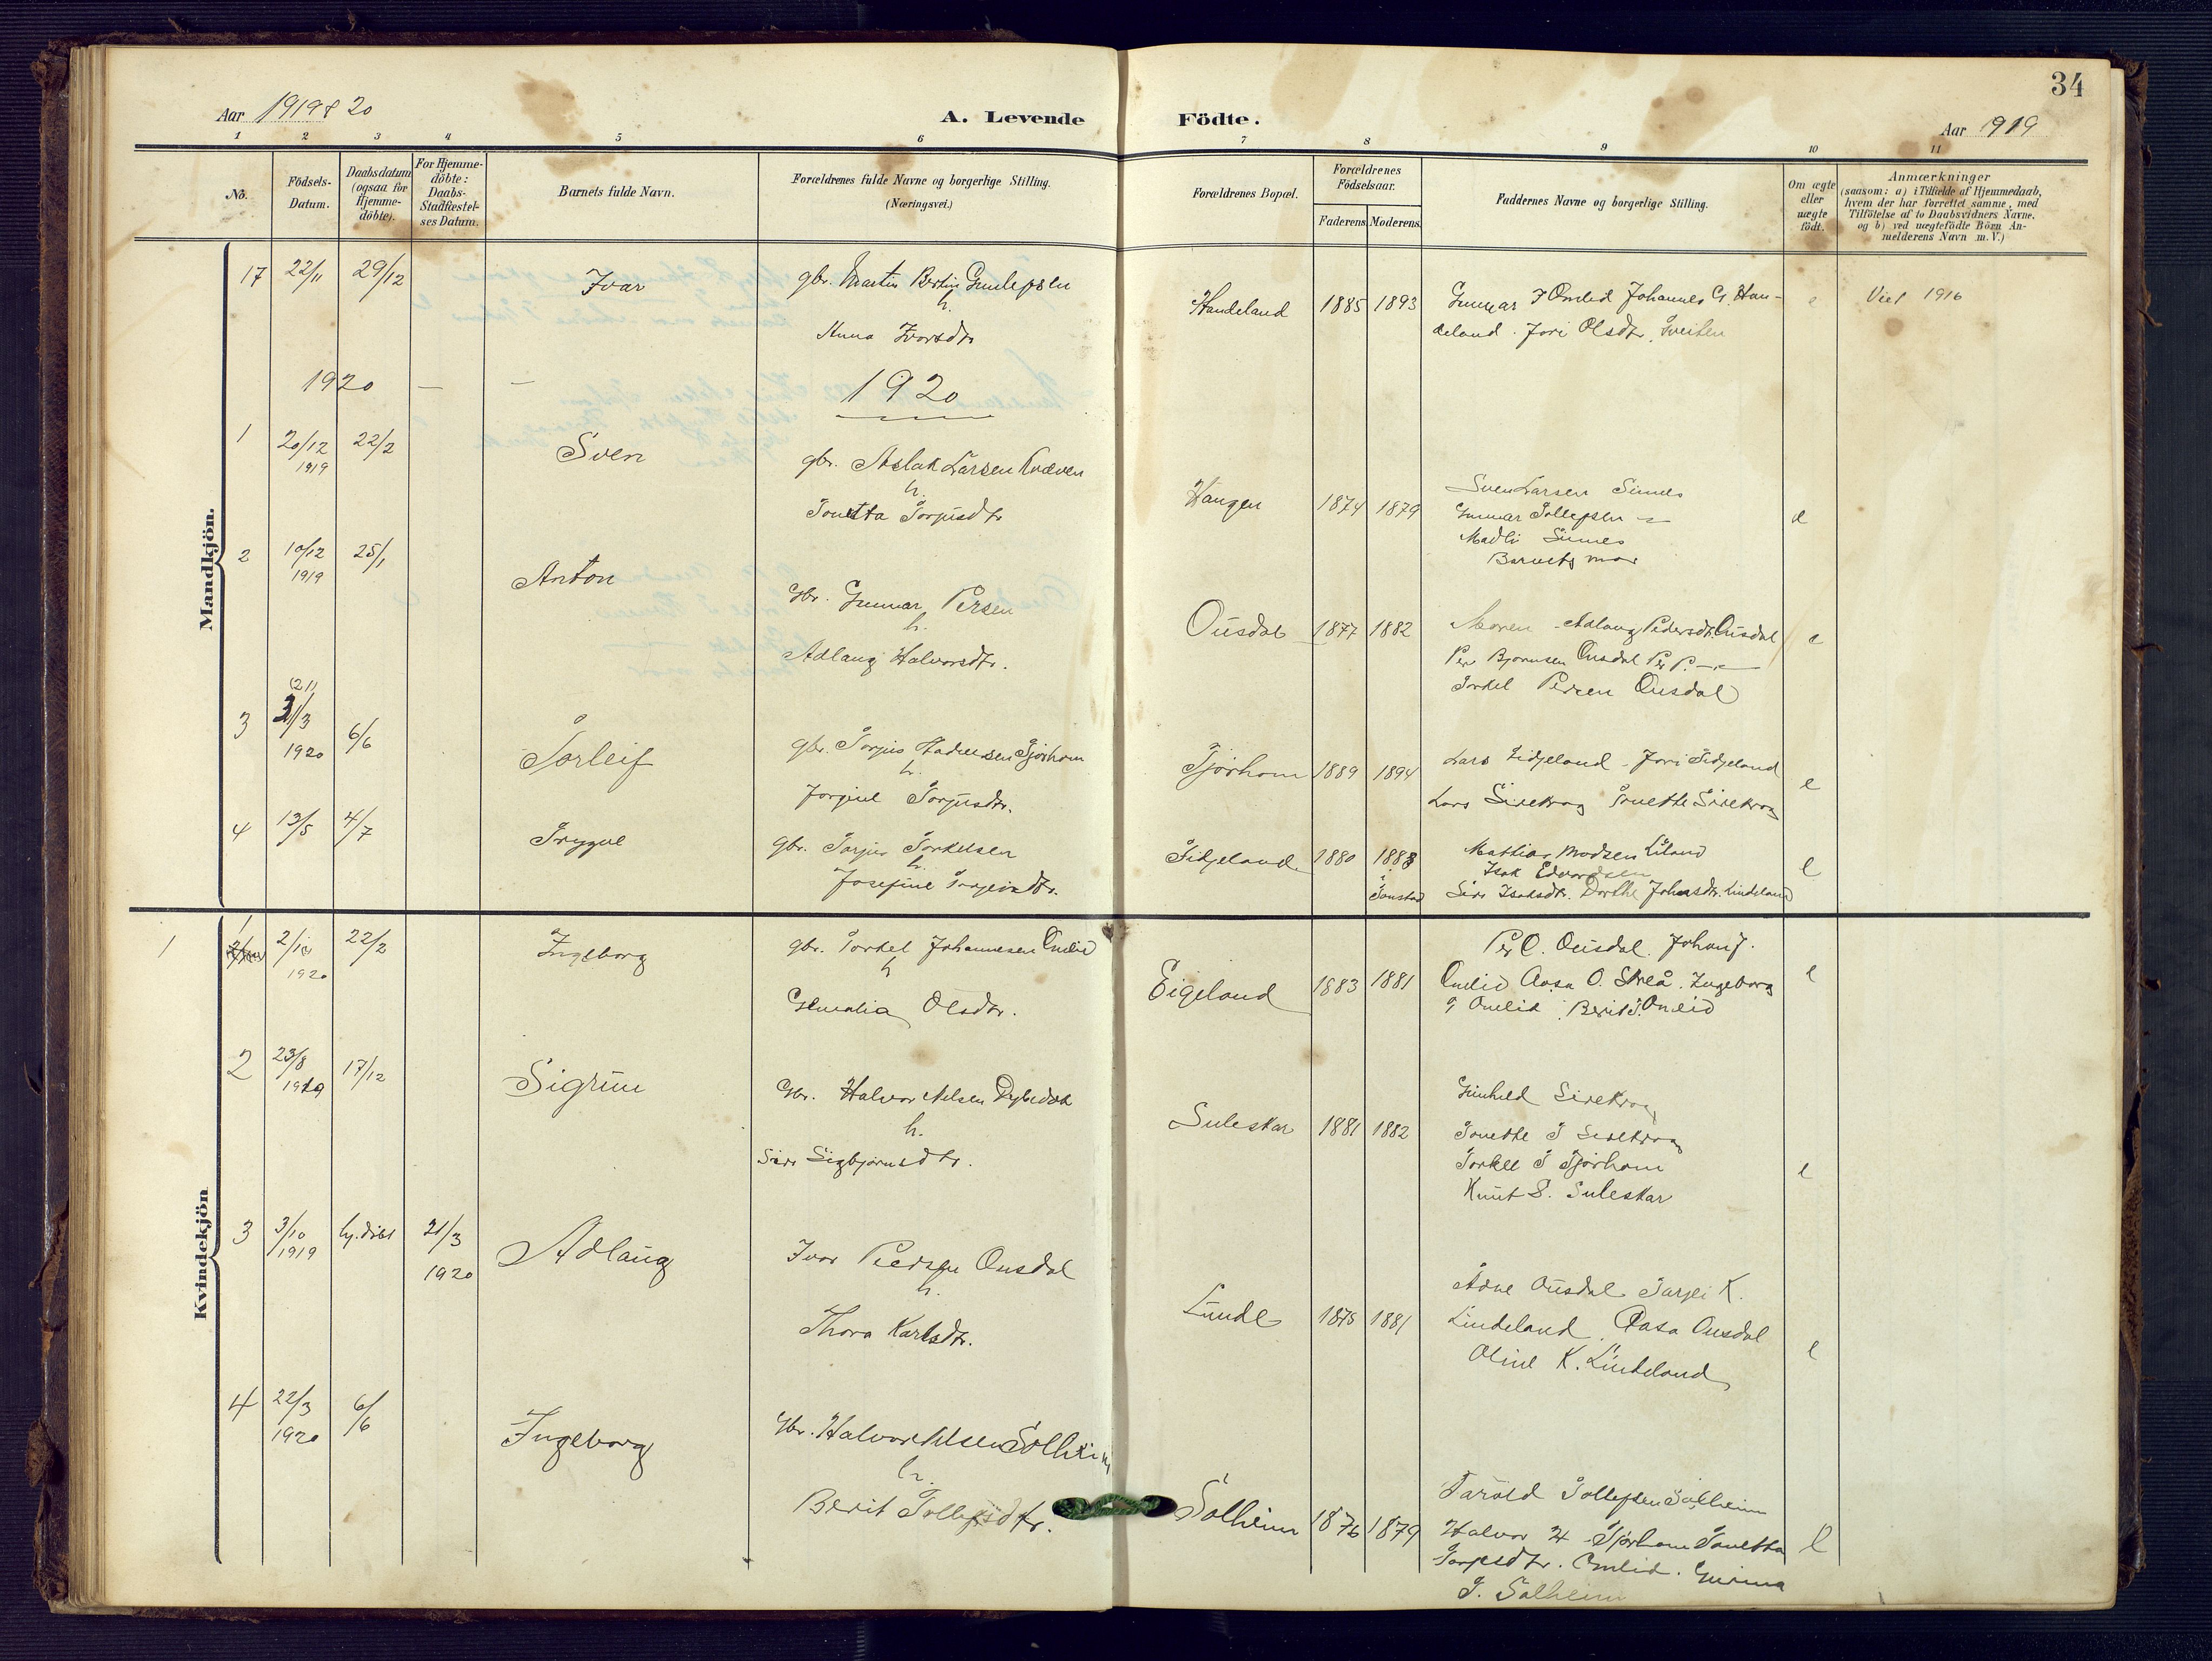 34
Aar 1919 & 20
A. Levende Födte.
Aar 1919
1 2 3 4 5 6 7 8 9 10 11
No.
Födsels-Datum.
Daabsdatum (ogsaa for Hjemme-döbte).
For Hjemme-döbte: Daabs-Stadfæstel-ses Datum.
Barnets fulde Navn.
Forældrenes fulde Navne og borgerlige Stilling.
(Næringsvei.)
Forældrenes Bopæl.
Forældrenes Födselsaar.
Faderens Moderens
Faddernes Navne og borgerlige Stilling.
Om ægte eller uægte födt.
Anmærkninger
(saasom: a) i Tilfælde af Hjemmedaab,
hvem der har forrettet samme, med
Tilföielse af to Daabsvidners Navne.
og b) ved uægtefödte Börn An-
melderens Navn m. V.)
Mandkjön.
17 22/11 29/12 Ivar gbr. Martin Bertin Gunlepsen
h.
Anna Ivarsdtr
Handeland 1885 1893 Gunnar T Omlid Johannes G. Han-
deland. Jori Olsdtr. Tveiten
e Viet 1916
1920 — — 1920
1 20/12 1919 22/2 Sven gbr. Aslak Larsen Kvæven
h.
Tonetta Torjusdtr
Haugen 1874 1879 Sven Larsen Sinnes
Gunnar Tollefsen —
Madli Sinnes
Barnets mor
e
2 10/12 1919 25/1 Anton Gbr. Gunnar Persen
h.
Adlaug Halvorsdtr.
Ousdal 1877 1882 Moren Adlaug Pedersdtr. Ousdal
Per Bjørnsen Ousdal Per P. —
Torkel Persen Ousdal
e
3 (21) 21/3 1920 6/6 Torleif gbr. Torjus Tjørhom
h.
Torjusdtr.
Tjørhom 1889 1894 Lars Fidjeland Jori Fidjeland
Lars Sirekrog Tonette Sirekrog
e
4 13/5 4/7 Trygve gbr. Tarjei Torkelsen
h.
Josefine
Fidjeland 1880 1883
Tonstad
Mathias Madsen Liland
Isak Edvardsen
Siri Isaksdtr. Dorthe Johnsdtr. Lindeland
e
Kvindekjön
1 1 2/10 1920 22/2 Ingeborg gbr. Torkel Johannesen Omlid
h
Olsdtr.
Eigeland 1883 1881 Per O. Ousdal. Johan J.
Omlid Aasa O. Ingeborg
J Omlid Berit J. Omlid
e
2 23/8 1919 17/12 Sigrun Gbr. Halvor Nilsen
h.
Siri Sigbjørnsdtr.
Suleskar 1881 1882 Gunhild Sirekrog
Tonette T Sirekrog
Torkel T Tjørhom
Knut S. Suleskar
e
3 3/10 1919 hj. døbt 21/3 1920 Adlaug Ivar Pedersen Ousdal
h.
Thora Karlsdtr.
Lunde 1875 1881 Ådne Ousdal Tarjei K.
Lindeland. Aasa Ousdal
Oline K. Lindeland
e
4 22/3 1920 6/6 Ingeborg Gbr. Halvor Nilsen Solheim
h.
Berit Tollefsdtr.
Solheim 1876 1879 Tarald Tollefsen Solheim
Halvor H Tjørhom Tonetta
Torjusdtr. Omlid. Gurina
T. Solheim
e